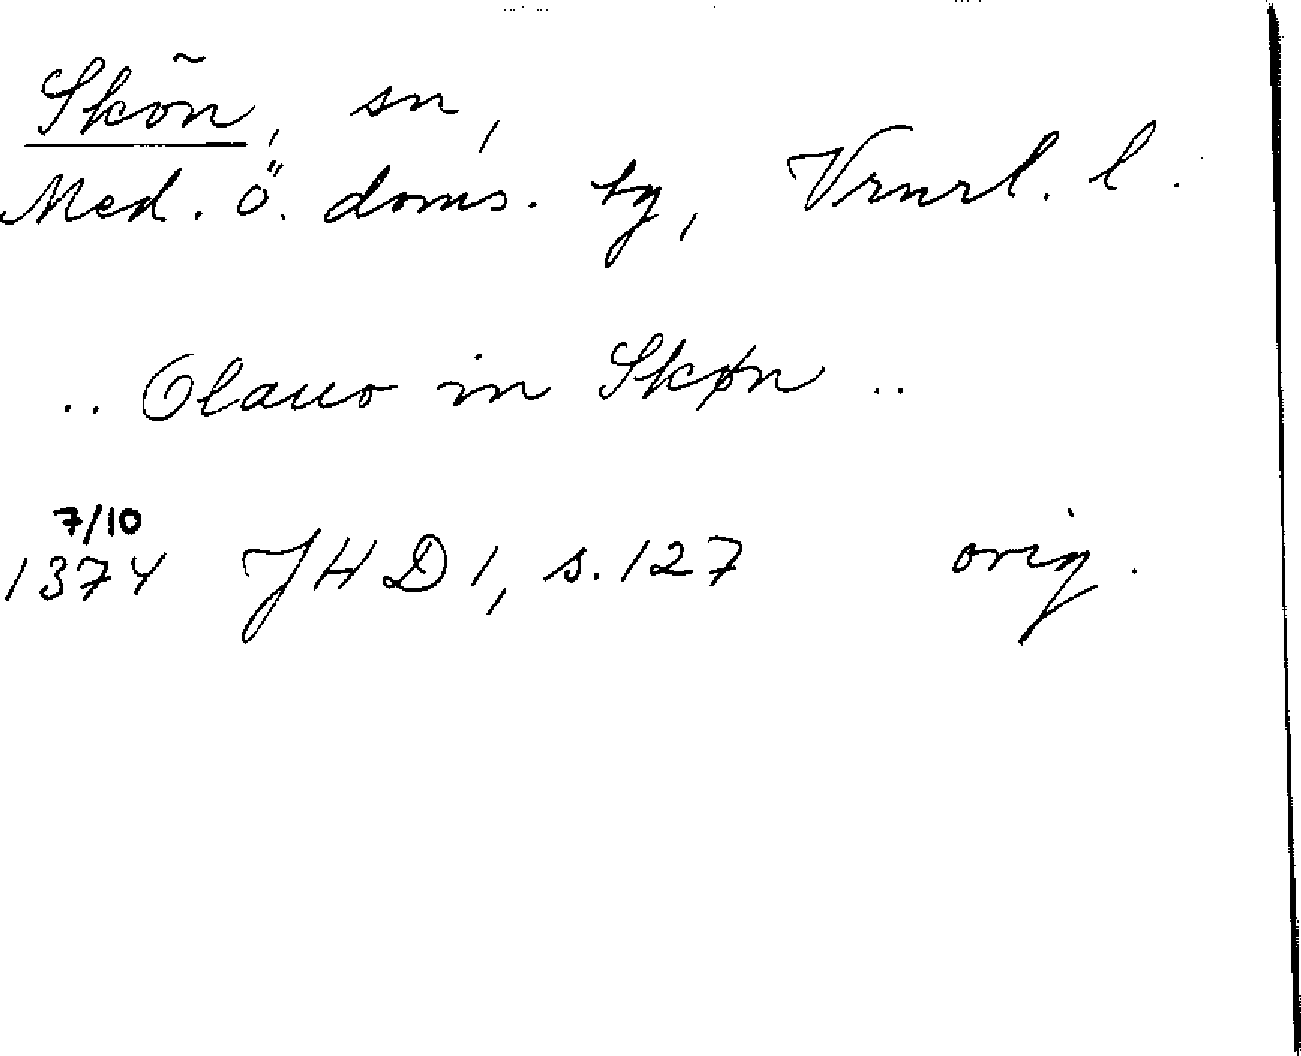 Skön, sn,
Med. ö. doms. tg, Vrnrl. l.
.. Olauo in Skøn ..
7/10
1374 JHD 1, s. 127 orig.